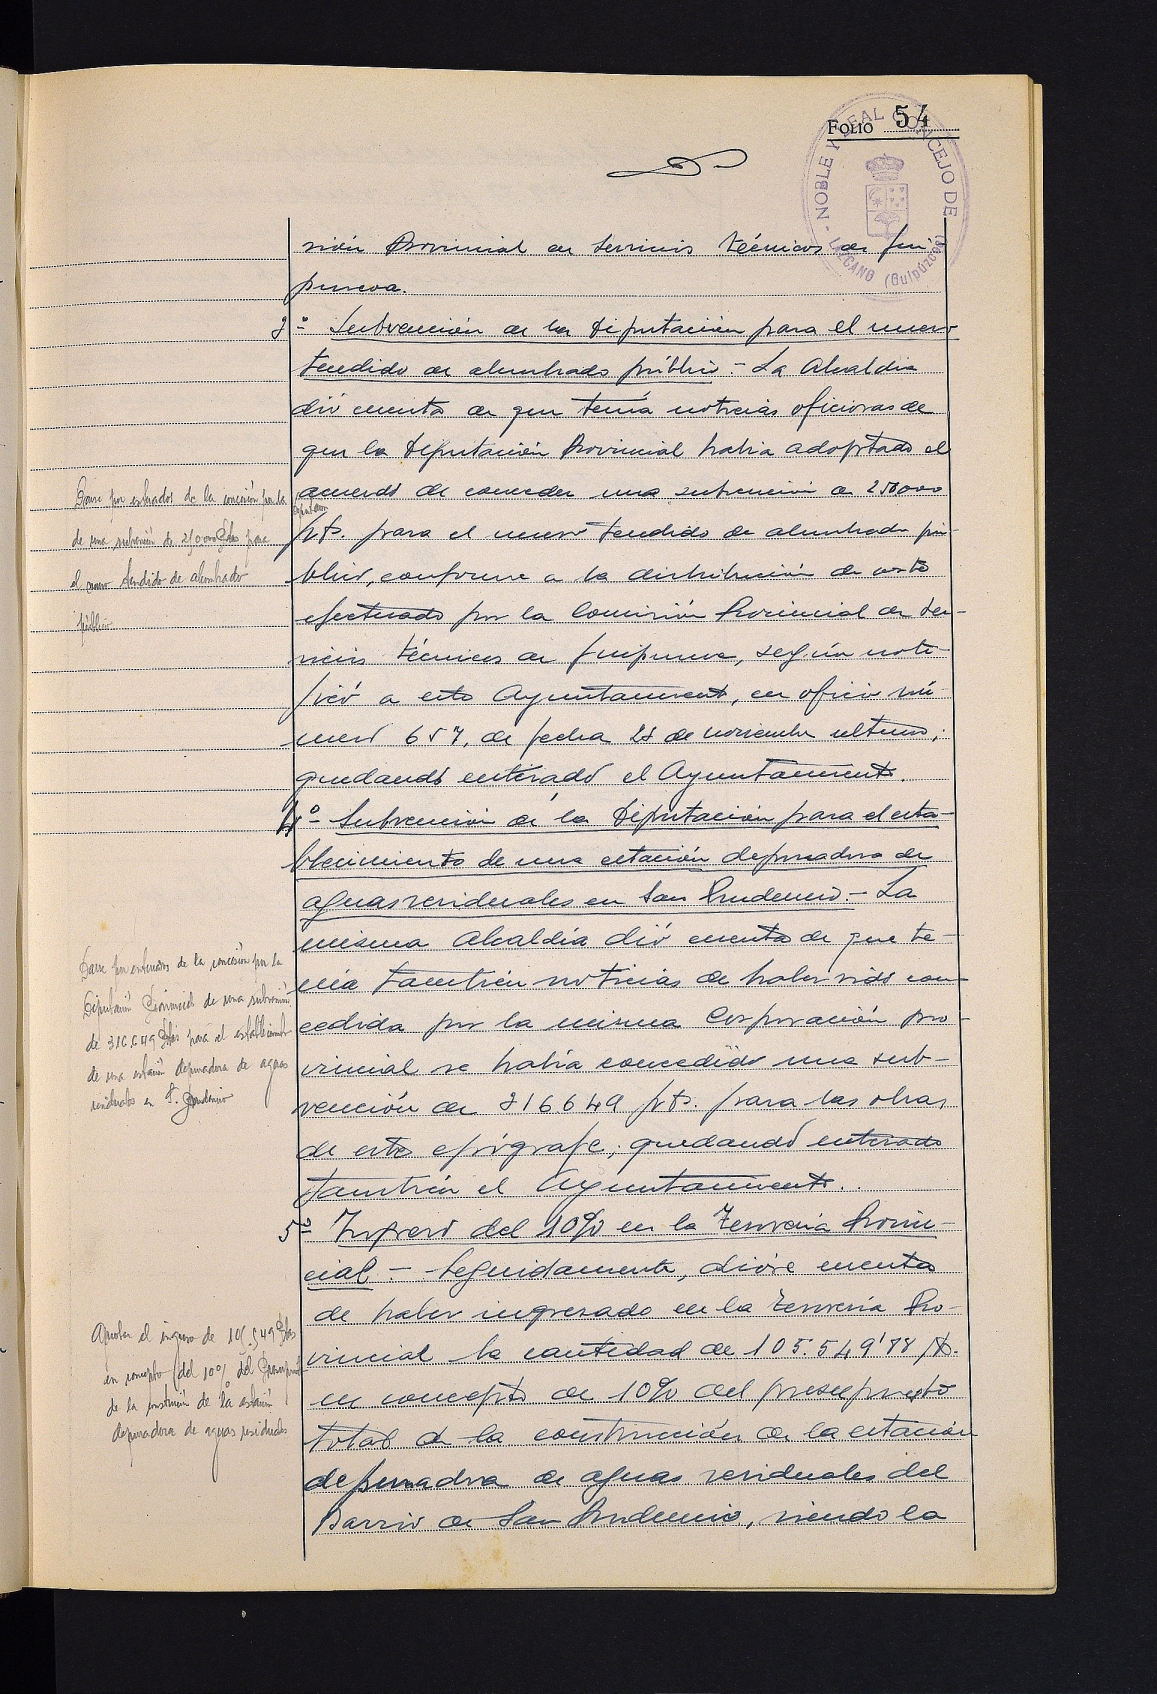 Folio 54
NOBLE Y LEAL CONCEJO DE
- LAZCANO (Guipúzcoa)
sión Provincial de Servicios técnicos de Gui-
púzcoa.
3º- Subvención de la Diputación para el nuevo
tendido de alumbrado público.- La Alcaldía
dió cuenta de que tenía noticias oficiosas de
que la Diputación Provincial había adoptado el
acuerdo de conceder una subvención de 250000
pts. para el nuevo tendido de alumbrado pú-
blico, conforme a la distribución de esta
efectuado por la Comisión Provincial de Ser-
vicios técnicos de Guipúzcoa, según noti-
ficó a esta Ayuntamiento, en oficio nú-
mero 657, de fecha 28 de noviembre ultimo;
quedando enterado el Ayuntamiento.
4º- Subvención de la Diputación para el esta-
blecimiento de una estación depuradora de
aguas residuales en San Prudencio.- La
misma Alcaldía dió cuenta de que te-
nía también noticias de haber sido con-
cedida por la misma Corporación pro-
vincial se había concedido una sub-
vención de 316649 pts. para las obras
de este epígrafe; quedando enterado
también el Ayuntamiento.
5º Ingreso del 10% en la Tesorería Provin-
cial - Seguidamente, dióse cuenta
de haber ingresado en la Tesorería Pro-
vincial la cantidad de 105.549'88 pts.
en concepto de 10% del presupuesto
total de la construcción de la estación
depuradora de aguas residuales del
Barrio de San Prudencio, siendo la
Darse por enterados de la concesión por la
Diputación
de una subvención de 250000 Ptas para
el nuevo tendido de alumbrado
público
Darse por enterados de la concesión por la
Diputación Provincial de una subvención
de 316.649 Ptas para el establecimiento
de una estación depuradora de aguas
residuales en S. Prudencio
Aprobar el ingreso de 105.549 Ptas
en concepto del 10% del Presupuesto
de la construcción de la estación
depuradora de aguas residuales